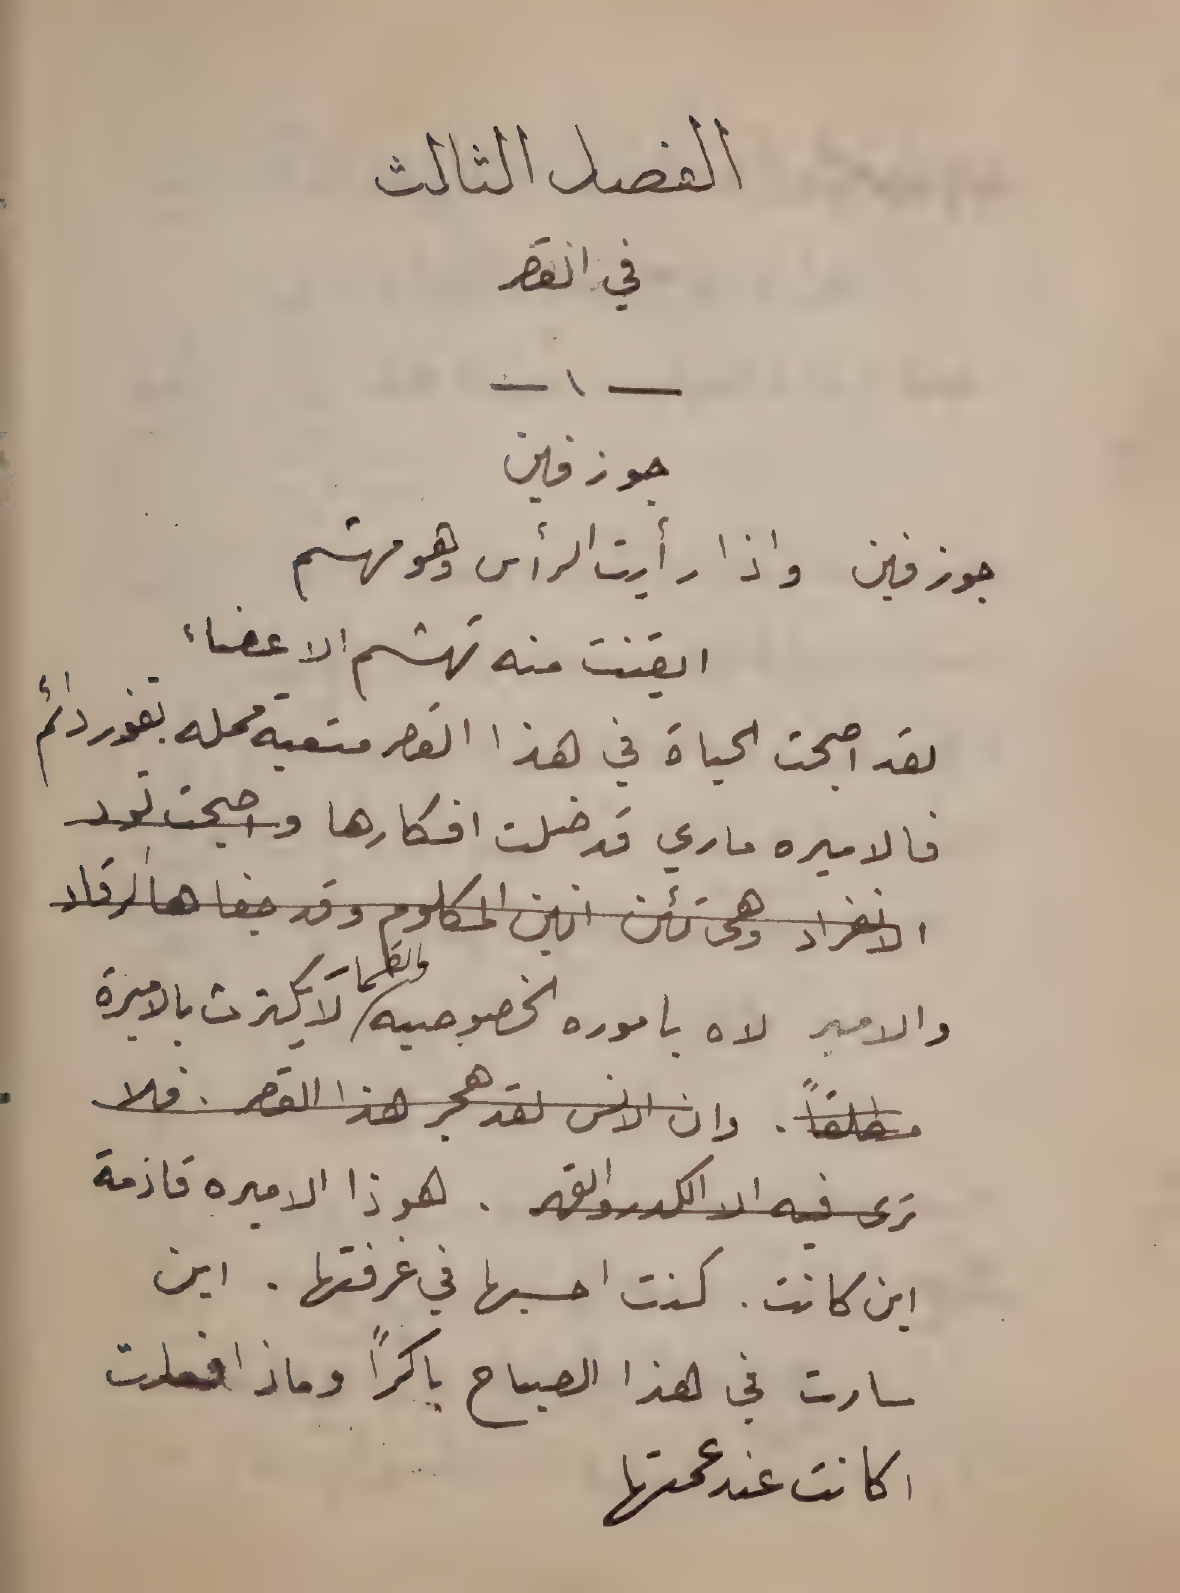 الفصل الثالث
في القصر
— ١ —
جوزفين
جوزفين واذا رأيت الرأس وهو مهشم
ايقنت منه تهشم الاعضاء
لقد اصبحت الحياة في هذا القصر متعبة مملة بنفور دائم
فالاميره ماري قد ضلت افكارها واصبحت تود
الانفراد وهي تئن انين المكلوم وقد جفاها الرقاد
والامير لاه باموره الخصوصيه لا يكترث بالاميرة
مطلقاً . وان الانس لقد هجر هذا القصر . فلا
ترى فيه الا الكدر والقهر . هوذا الاميره قادمة
اين كانت . كنت احسبها في غرفتها . اين
سارت في هذا الصباح باكراً وماذا فعلت
اكانت عند عمتها